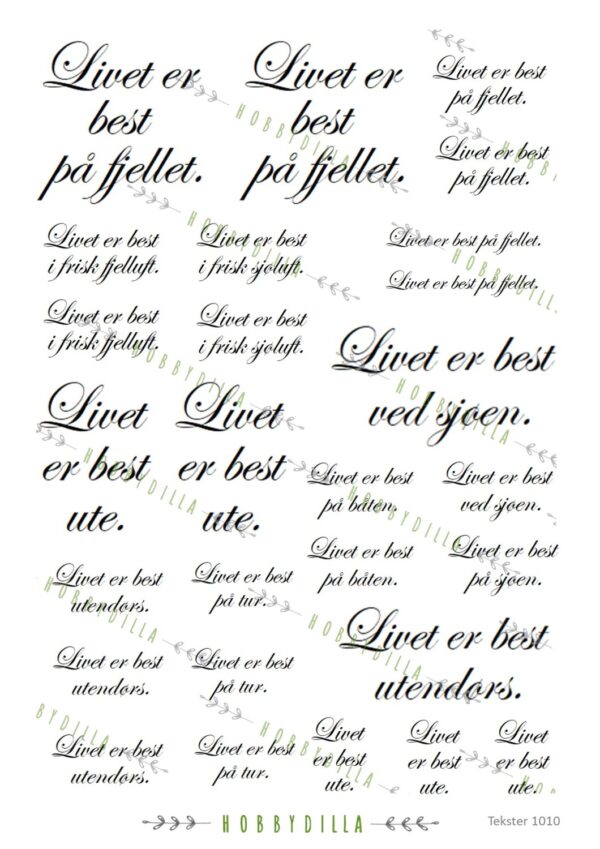 Livet er
best
på fjellet.
Livet er
best
på fjellet.
Livet er best
på fjellet.
Livet er best
på fjellet.
HOBBYDILLA
Livet er best
i frisk fjelluft.
Livet er best
i frisk sjøluft.
Livet er best på fjellet.
Livet er best på fjellet.
HOBBYDILLA
HOBBYDILL
Livet er best
i frisk fjelluft.
Livet er best
i frisk sjøluft.
Livet er best
ved sjøen.
HOBBYDILLA
HOBBYDILLA
Livet
er best
ute.
Livet
er best
ute.
HOBBYDILLA
Livet er best
på båten.
Livet er best
ved sjøen.
HOBBYDILLA
Livet er best
på båten.
Livet er best
på sjøen.
Livet er best
utendørs.
Livet er best
på tur.
HOBBYDILLA
Livet er best
utendørs.
HOBBYDILLA
Livet er best
utendørs.
Livet er best
på tur.
BYDILLA
HOBBYDILLA
Livet er best
utendørs.
Livet er best
på tur.
Livet
er best
ute.
Livet
er best
ute.
Livet
er best
ute.
HOBBYDILLA
Tekster 1010